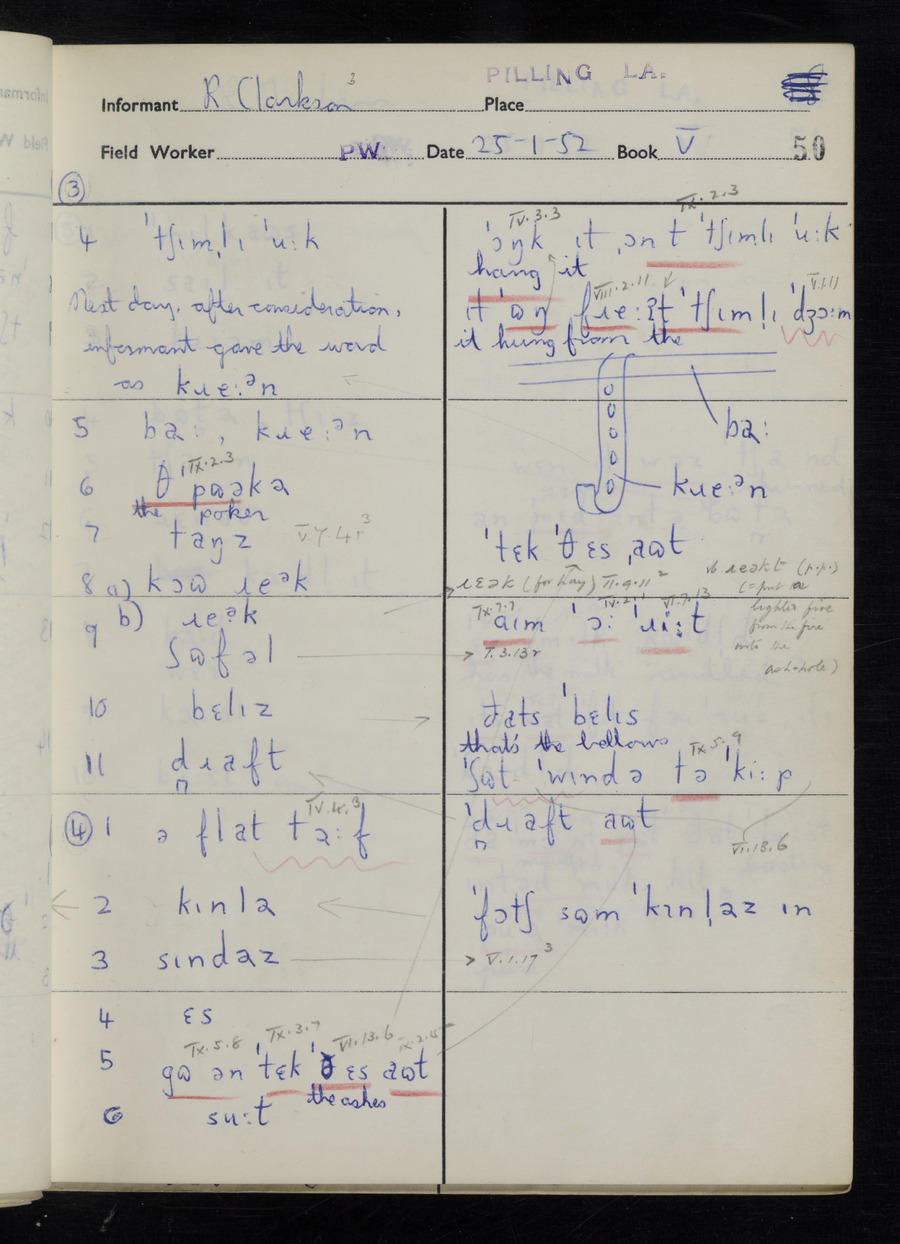 PILLING LA.
Informant R Clarkson³ Place
Field Worker PW. Date 25-1-52 Book V 50
③
4 ˈtʃɪmlɪ ˈuːk
Next day, after consideration,
informant gave the word
as kɹɛːᵊn
5 baː, kɹɛːᵊn
6 θ ˈpɷəkə IX.2.3
the poker
7 taŋz V.7.4r³
8 a) kɔɷ ɹɛᵊk
b) ɹɛᵊk
9 ʃɷfəl
10 bɛlɪz
11 dɹaft
④ 1 ə flat təːf IV.4.3
2 kɪnlə
3 sɪndəz
4 ɛs
IX.5.8 IX.3.7 VI.13.6 IX.2.15
5 gɷ ən ˈtɛk ˈθ ɛs aɷt
the ashes
6 suːt
IV.3.3 IX.2.3
ˈɔŋk ɪt ˌən t ˈtʃɪmlɪ ˈuːk
hang it
VIII.2.11 V.1.11
ɪt ˈɷŋ fɹɛːʔt ˈtʃɪmlɪ ˈdʒɔːm
it hung from the
baː
kɹɛːᵊn
ˈtɛk ˈθ ɛs ˌaɷt
ɹɛək (for hay) II.9.11² vb ɹɛəkt (p.p.)
(= put a
lighter fire
from the fire
into the
ash-hole)
IX.7.7 IV.2.1 VI.7.13
ˈaɪm ˈɔː ˈɹiːt
I.3.13r
ðats ˈbɛlɪs
that's the bellows
IX.5.9
ˈʃɷt ˈwɪndə tə ˈkiːp
ˈdɹaft aɷt
VI.13.6
ˈfɔtʃ sɷm ˈkɪnləz ɪn
V.1.17³